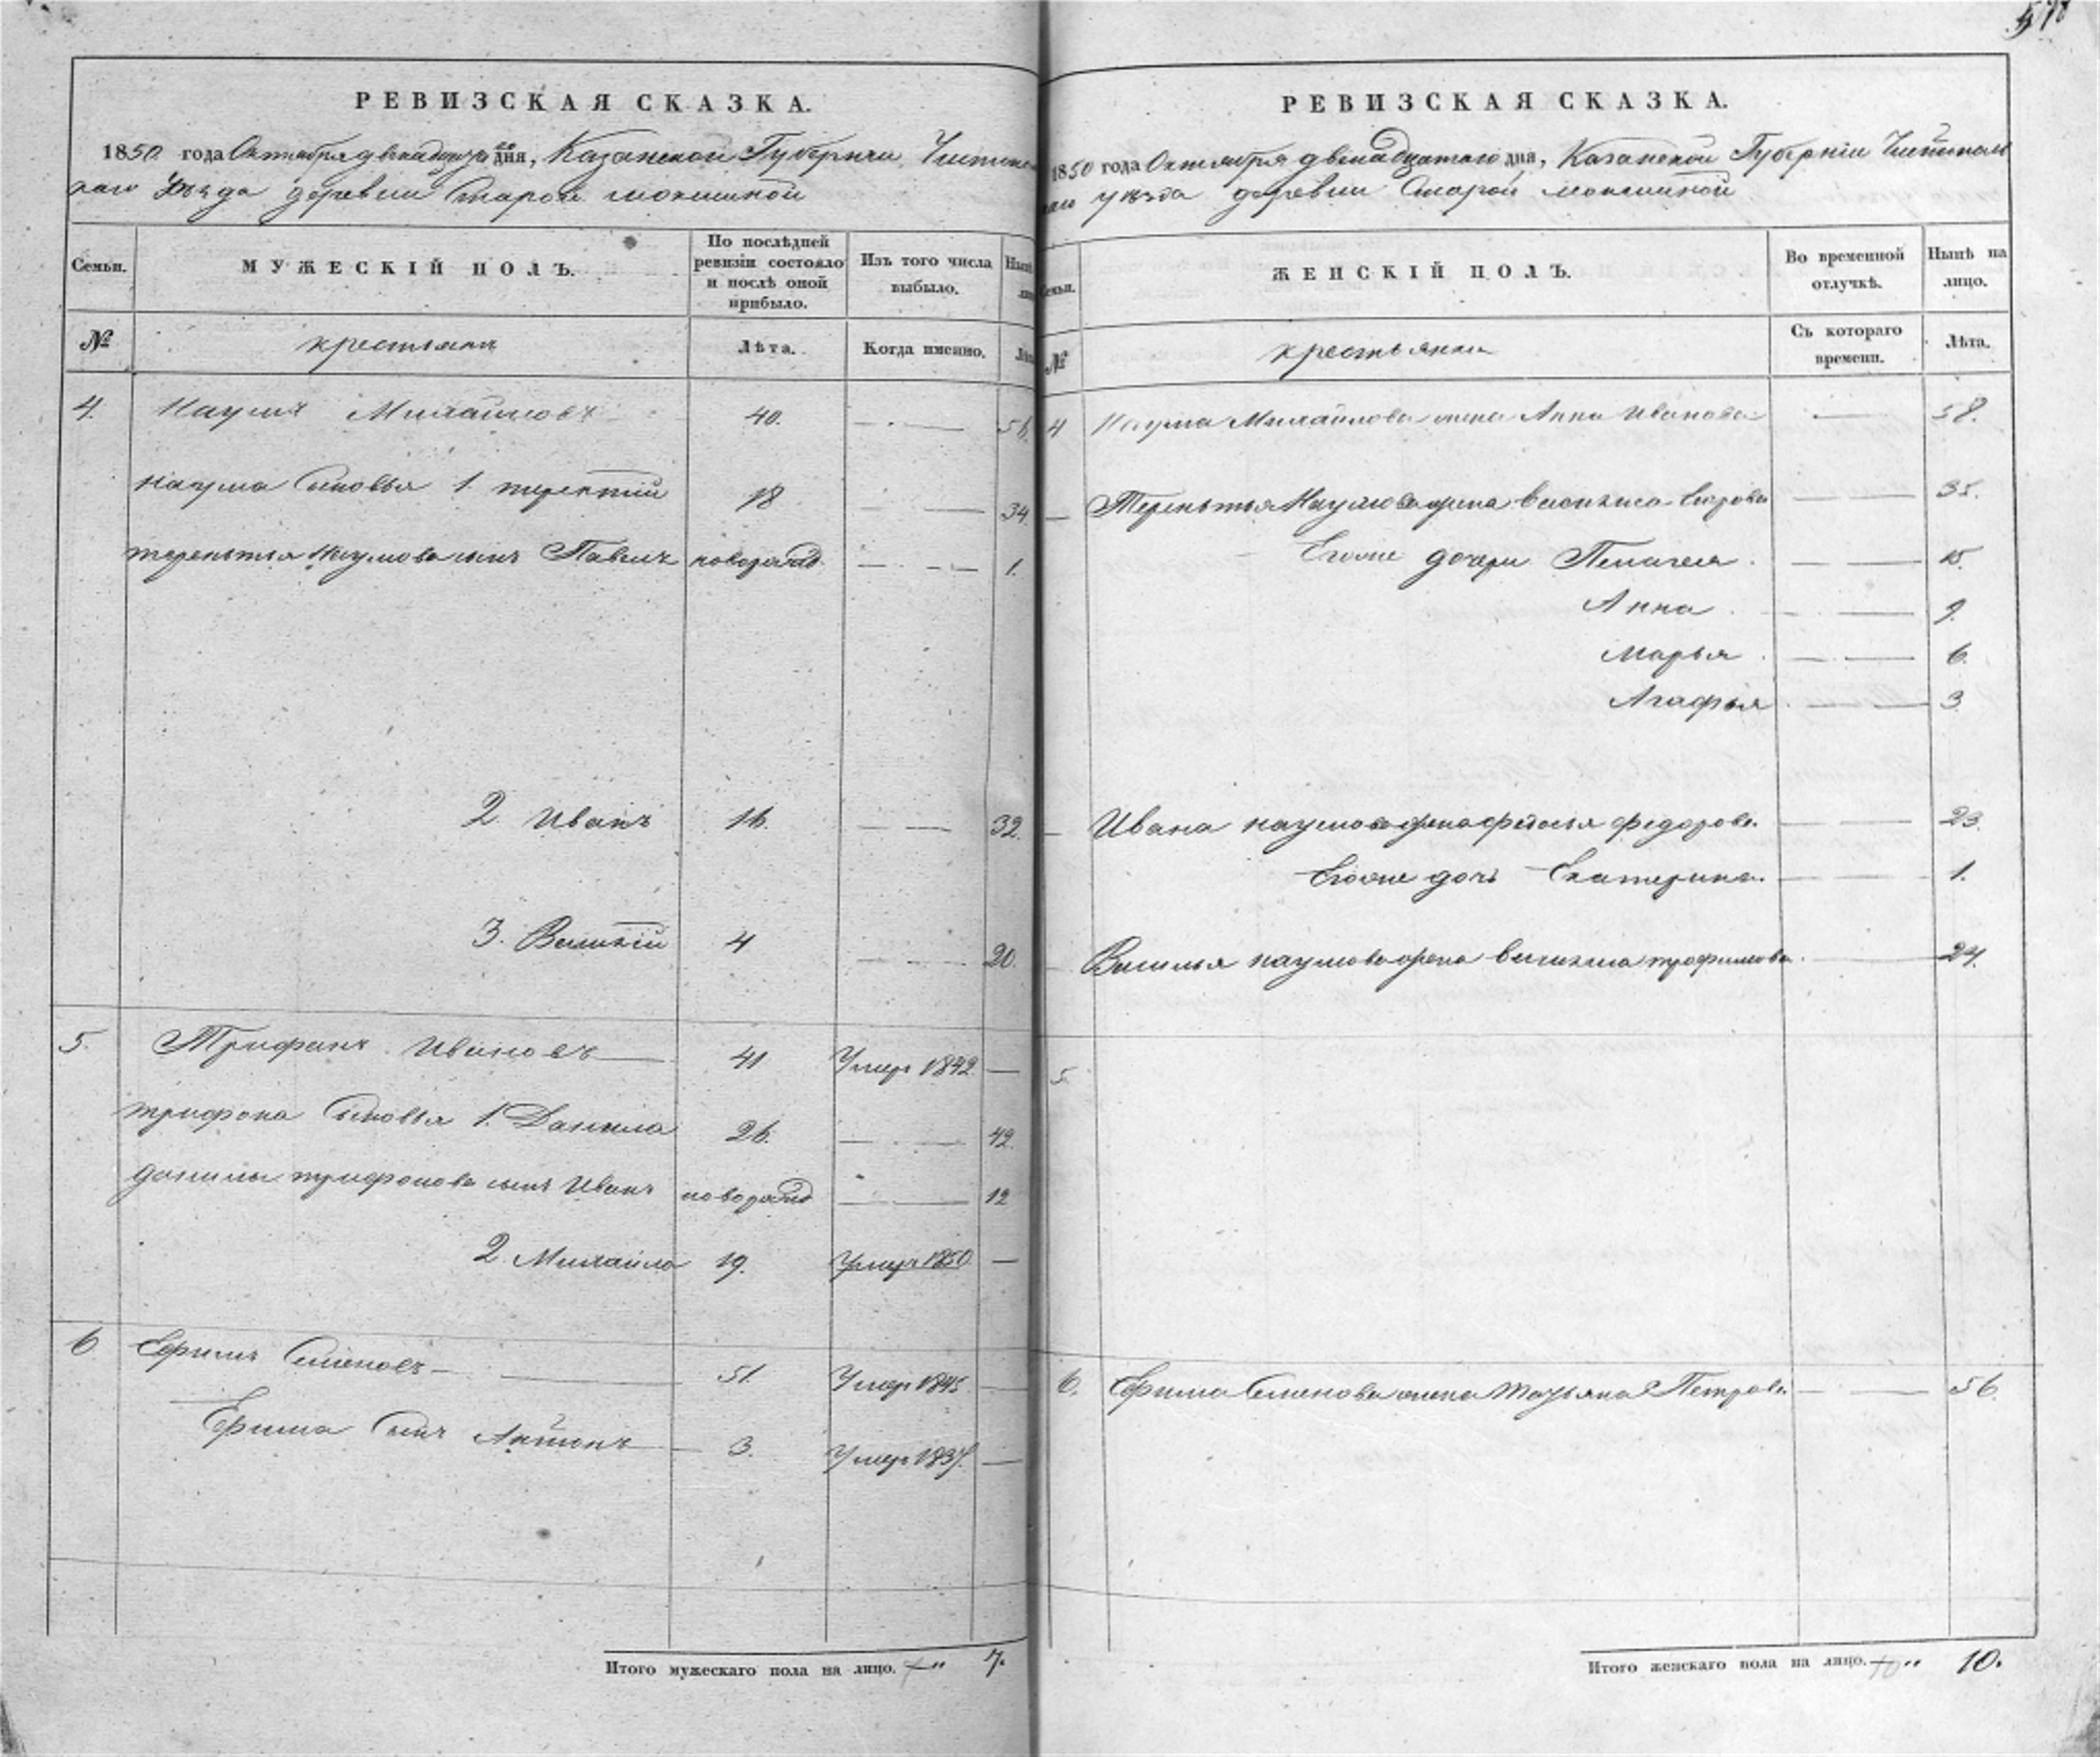 578
РЕВИЗСКАЯ СКАЗКА.
1850 года Октября двенадцатаго дня, Казанской Губерніи Чистополь
скаго Уѣзда деревни Старой мокшиной
Семьи. МУЖЕСКІЙ ПОЛЪ. По послѣдней ревизіи состояло и послѣ оной прибыло. Изъ того числа выбыло. Нынѣ
№ крестьяне Лѣта. Когда именно. Лѣта
4. Наумъ Михайловъ 40. — 56.
Наума сыновья 1. терентій 18 — 34.
терентья Наумова сынъ Павелъ новорожд. — 1.
2 Иванъ 16. — 32.
3. Василій 4 — 20.
5. Трифанъ Ивановъ 41 Умеръ 1842. —
трифона сыновья 1. Данила 26. — 42.
данилы трифонова сынъ Иванъ новорожд — 12
2 Михайла 19. Умеръ 1850 —
6 Ефимъ Семеновъ 51. Умеръ 1845. —
Ефима сынъ Антонъ 3. Умеръ 1837. —
Итого мужескаго пола на лицо. 7.
РЕВИЗСКАЯ СКАЗКА.
1850 года Октября двенадцатаго дня, Казанской Губерніи Чистополь
скаго уѣзда деревни Старой мокшиной
Семьи. ЖЕНСКІЙ ПОЛЪ. Во временной отлучкѣ. Нынѣ на лицо.
№ крестьянки Съ котораго времени. Лѣта.
4 Наума Михайлова жена Анна Иванова — 58.
— Терентья Наумова жена Василиса Егорова — 35.
Егоже дочери Пелагея — 15.
Анна — 9.
Марья — 6.
Агафья — 3
— Ивана наумова жена федосья федорова — 23.
Егоже дочь Екатерина — 1.
— Василья наумова жена василиса трофимова — 24.
5.
6. Ефима Семенова жена Татьяна Петрова — 56.
Итого женскаго пола на лицо. 10.